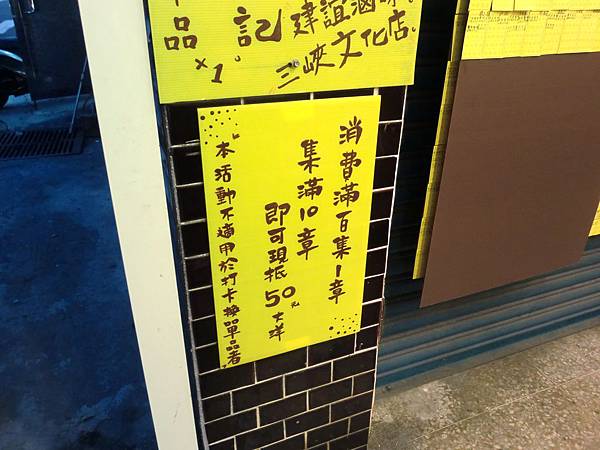 建誼滷味
三峽文化店。
記
品×1。
消費滿百集1章
集滿10章
即可現抵50元大洋
"本活動不適用於打卡換單品者"